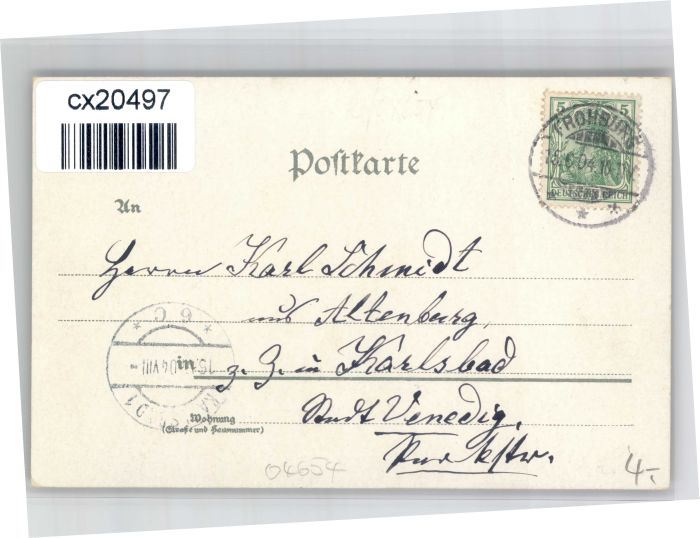 cx20497
5 5
FROHBURG
04
DEUTSCHES REICH
Postkarte
An
Herrn Karl Schmidt
aus Altenburg,
in z. Z. in Karlsbad
6 C
15 04 VIII
Wohnung
(Straße und Hausnummer)
Stadt Venedig,
Parkstr.
04654
4,-